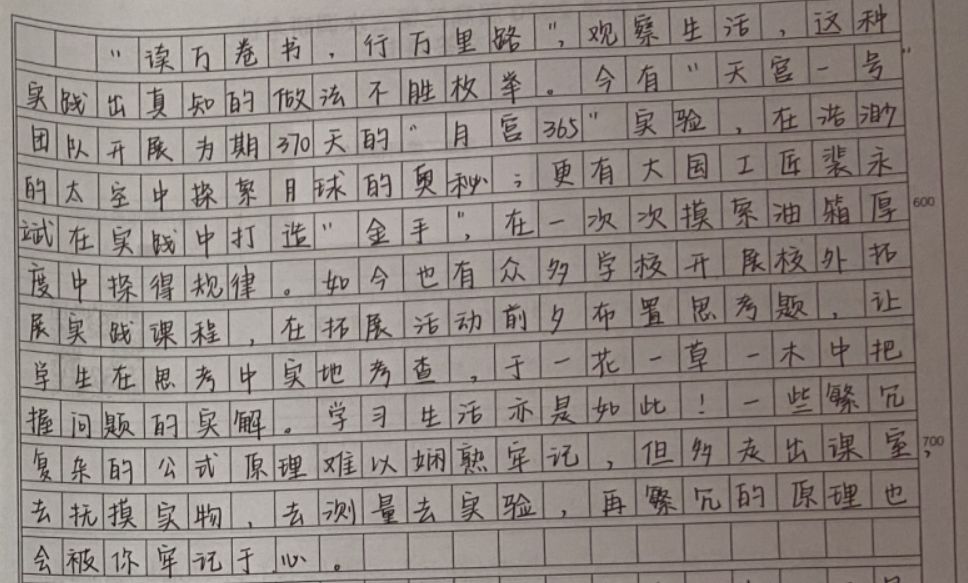 “读万卷书，行万里路”，观察生活，这种
实践出真知的做法不胜枚举。今有“天宫一号”
团队开展为期370天的“月宫365”实验，在浩渺
的太空中探索月球的奥秘；更有大国工匠裴永
斌在实践中打造“金手”，在一次次摸索油箱厚
度中探得规律。如今也有众多学校开展校外拓
展实践课程，在拓展活动前夕布置思考题，让
学生在思考中实地考查，于一花一草一木中把
握问题的实解。学习生活亦是如此！一些繁冗
复杂的公式原理难以娴熟牢记，但多走出课室，
去抚摸实物，去测量去实验，再繁冗的原理也
会被你牢记于心。
600
700